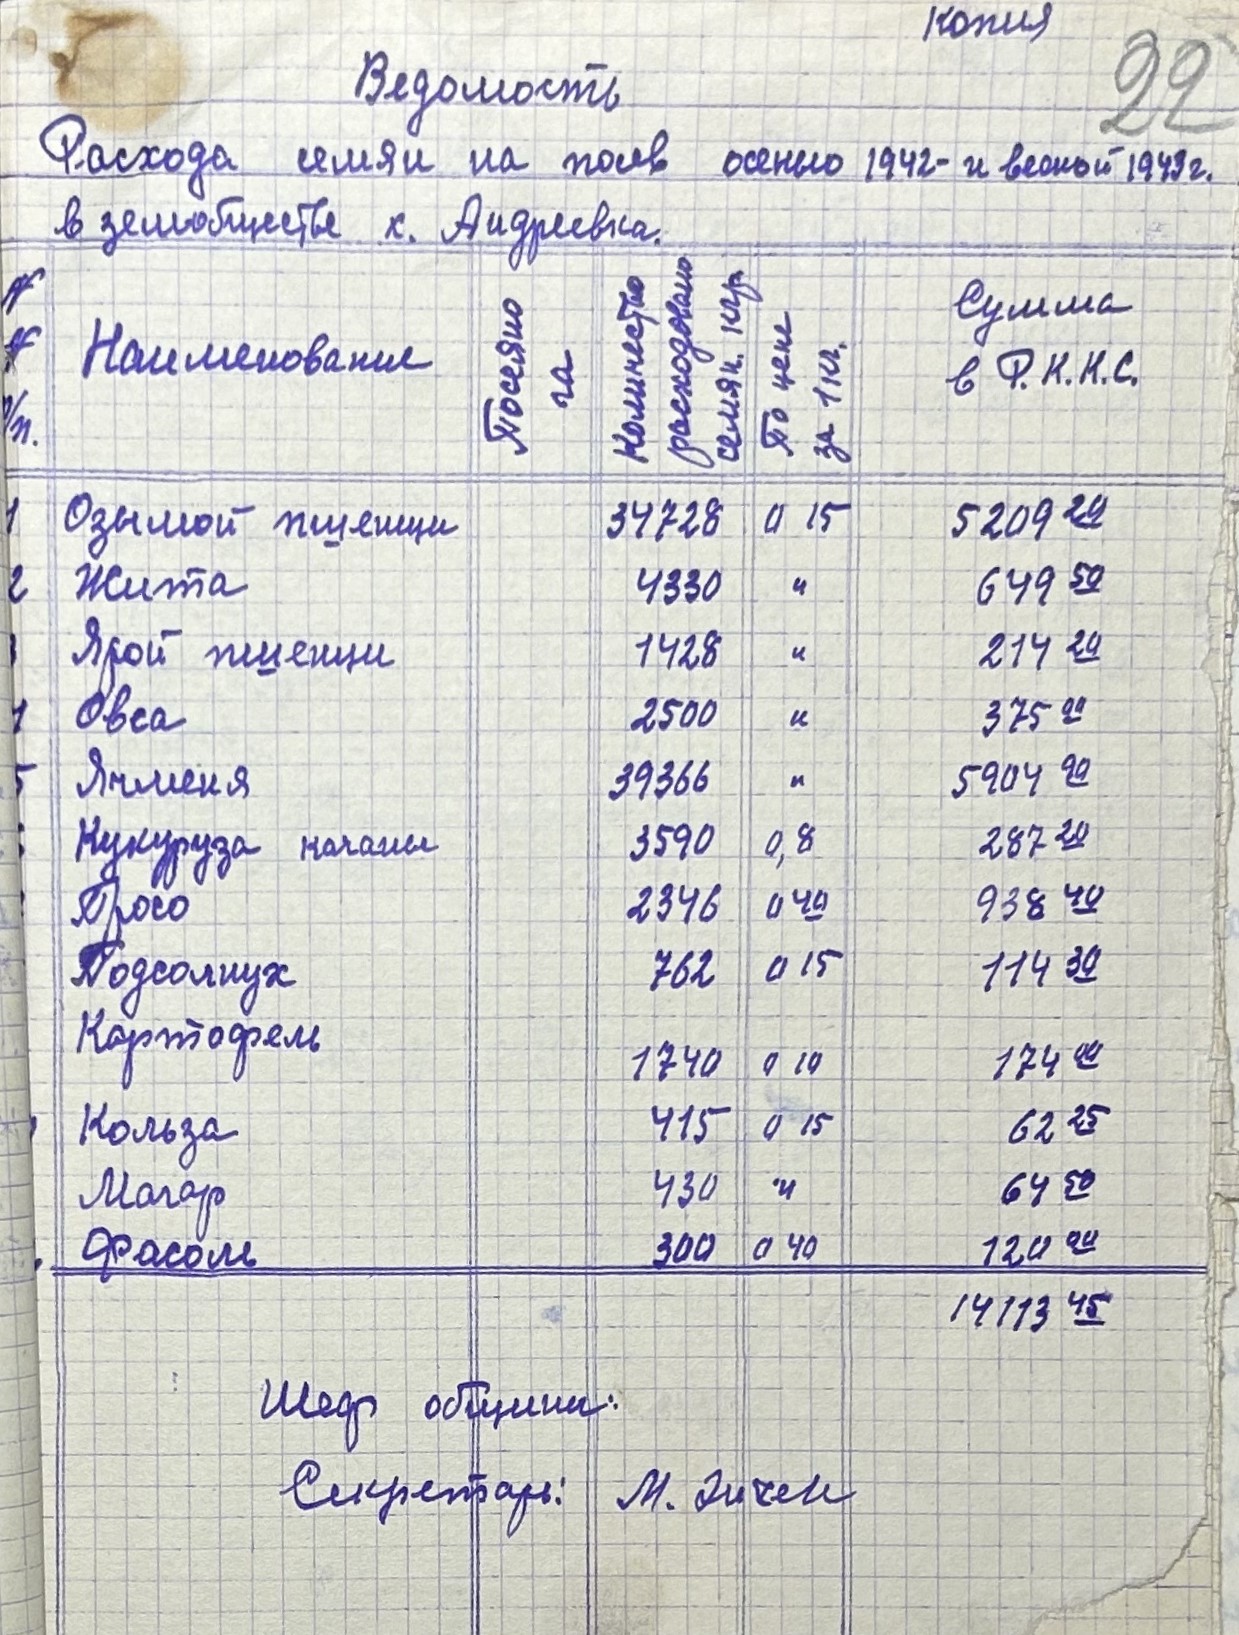 копия
22
Ведомость
Расхода семян на посев осенью 1942- и весной 1943 г.
в земобществе х. Андреевка.
№ № п/п. Наименование Посеяно га Количество расходовано семян. кгр. По цене за 1 кг. Сумма в Р.К.К.С.
1 Озымой пшеници 34728 0 15 5209 20
2 Жита 4330 " 649 50
Ярой пшеници 1428 " 214 20
Овса 2500 " 375 00
5 Ячменя 39366 " 5904 90
Кукуруза качаны 3590 0,8 287 20
Просо 2346 0 40 938 40
Подсолнух 762 0 15 114 30
Картофель 1740 0 10 174 00
Кользa 415 0 15 62 25
Магар 430 " 64 50
Фасоль 300 0 40 120 00
14113 45
Шеф общины:
Секретарь: М.